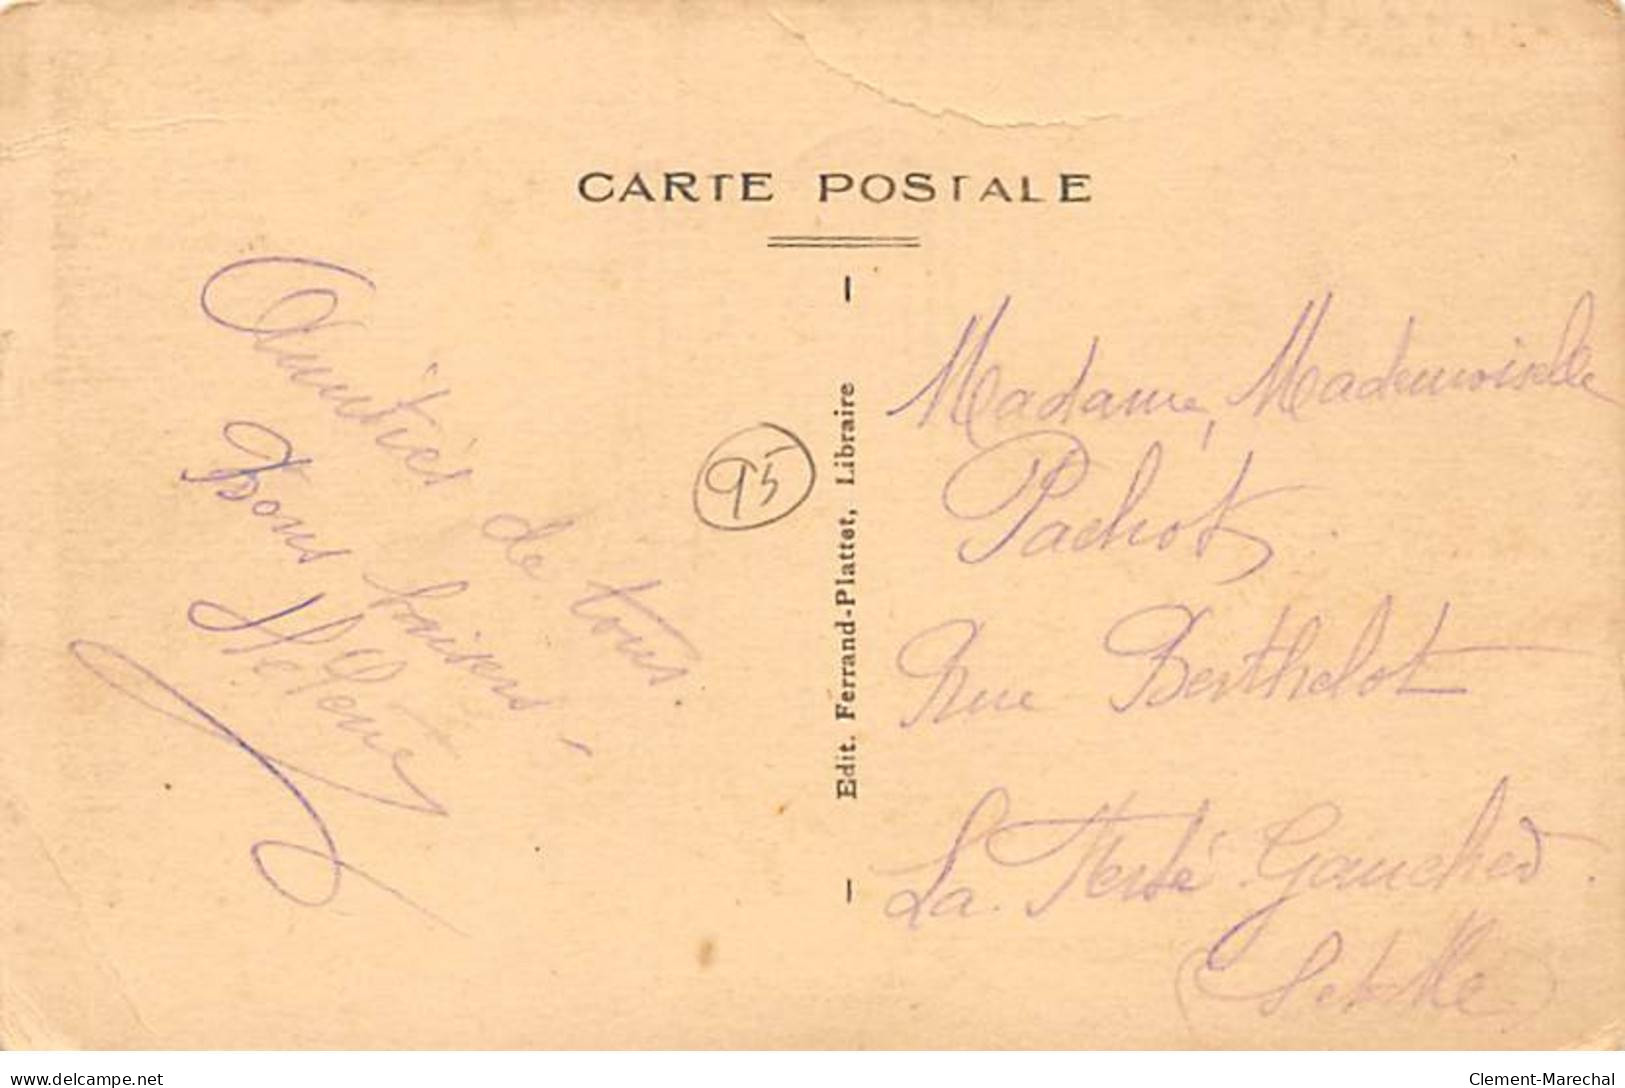 CARTE POSTALE
Amitiés de tous.
Bons baisers -
Hélène
95
Edit. Ferrand-Plattet, Libraire
Madame, Mademoiselle
Pachot
Rue Berthelot
La Ferté Gaucher
(S et Me)
delcampe.net
Clement-Marechal